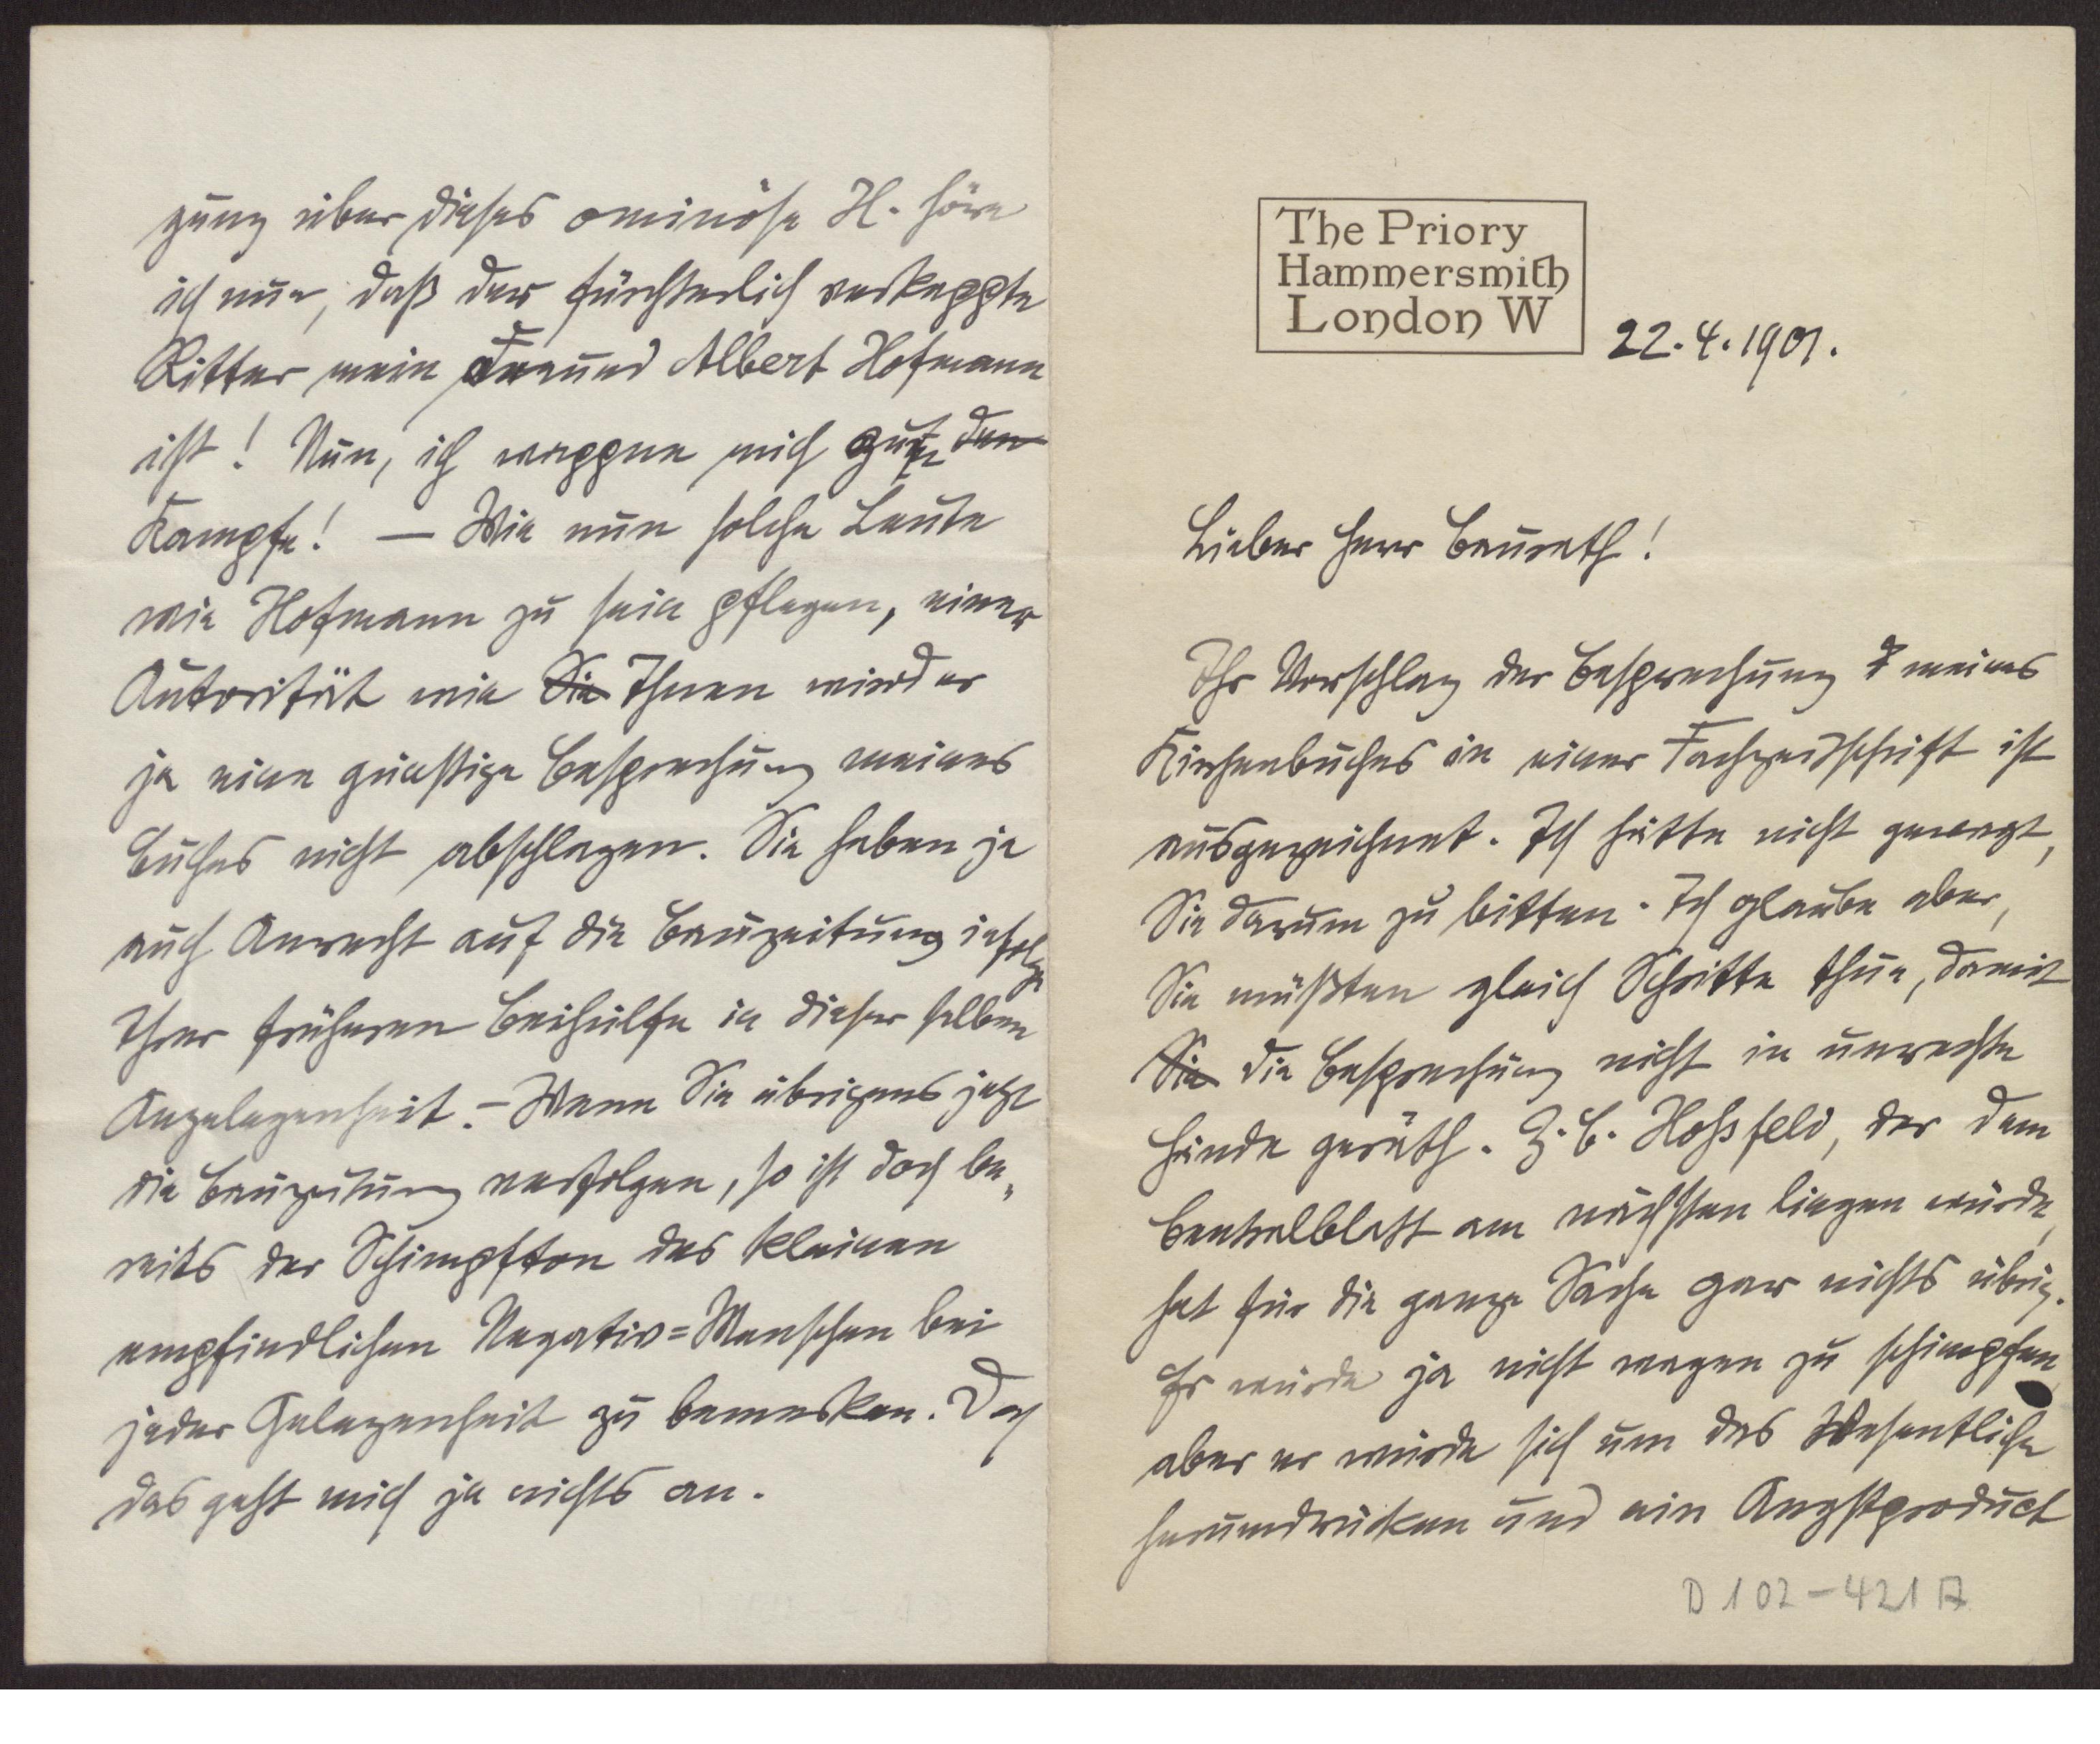 The Priory
Hammersmith
London W
22.4.1901.
Lieber Herr Baurath!
Ihr Vorschlag der Besprechung meines
Kirchenbuches in einer Fachzeitschrift ist
ausgezeichnet. Ich hätte nicht gewagt,
Sie darum zu bitten. Ich glaube aber,
Sie müßten gleich Schritte thun, damit
Sie die Besprechung nicht in unrechte
Hände geräth. Z.B. Hoßfeld, der dem
Centralblatt am nächsten liegen würde,
hat für die ganze Sache gar nichts übrig.
Er würde ja nicht wagen zu schimpfen,
aber er würde sich um das Wesentliche
herumdrücken und ein Angstproduct
D 102-421 A
gung über dieses ominöse H. höre
ich nun, daß der fürchterlich verkappte
Ritter mein Freund Albert Hofmann
ist! Nun, ich wappne mich zum den
Kampfe! — Wie nun solche Leute
wie Hofmann zu sein pflegen, einer
Autorität wie Sie Ihnen wird er
ja eine günstige Besprechung meines
Buches nicht abschlagen. Sie haben ja
auch Anrecht auf die Bauzeitung infolge
Ihrer früheren Beihülfe in dieser selben
Angelegenheit. – Wenn Sie übrigens jetzt
die Bauzeitung verfolgen, so ist doch be„
reits der Schimpfton des kleinen
empfindlichen Negativ=Menschen bei
jeder Gelegenheit zu bemerken. Doch
das geht mich ja nichts an.